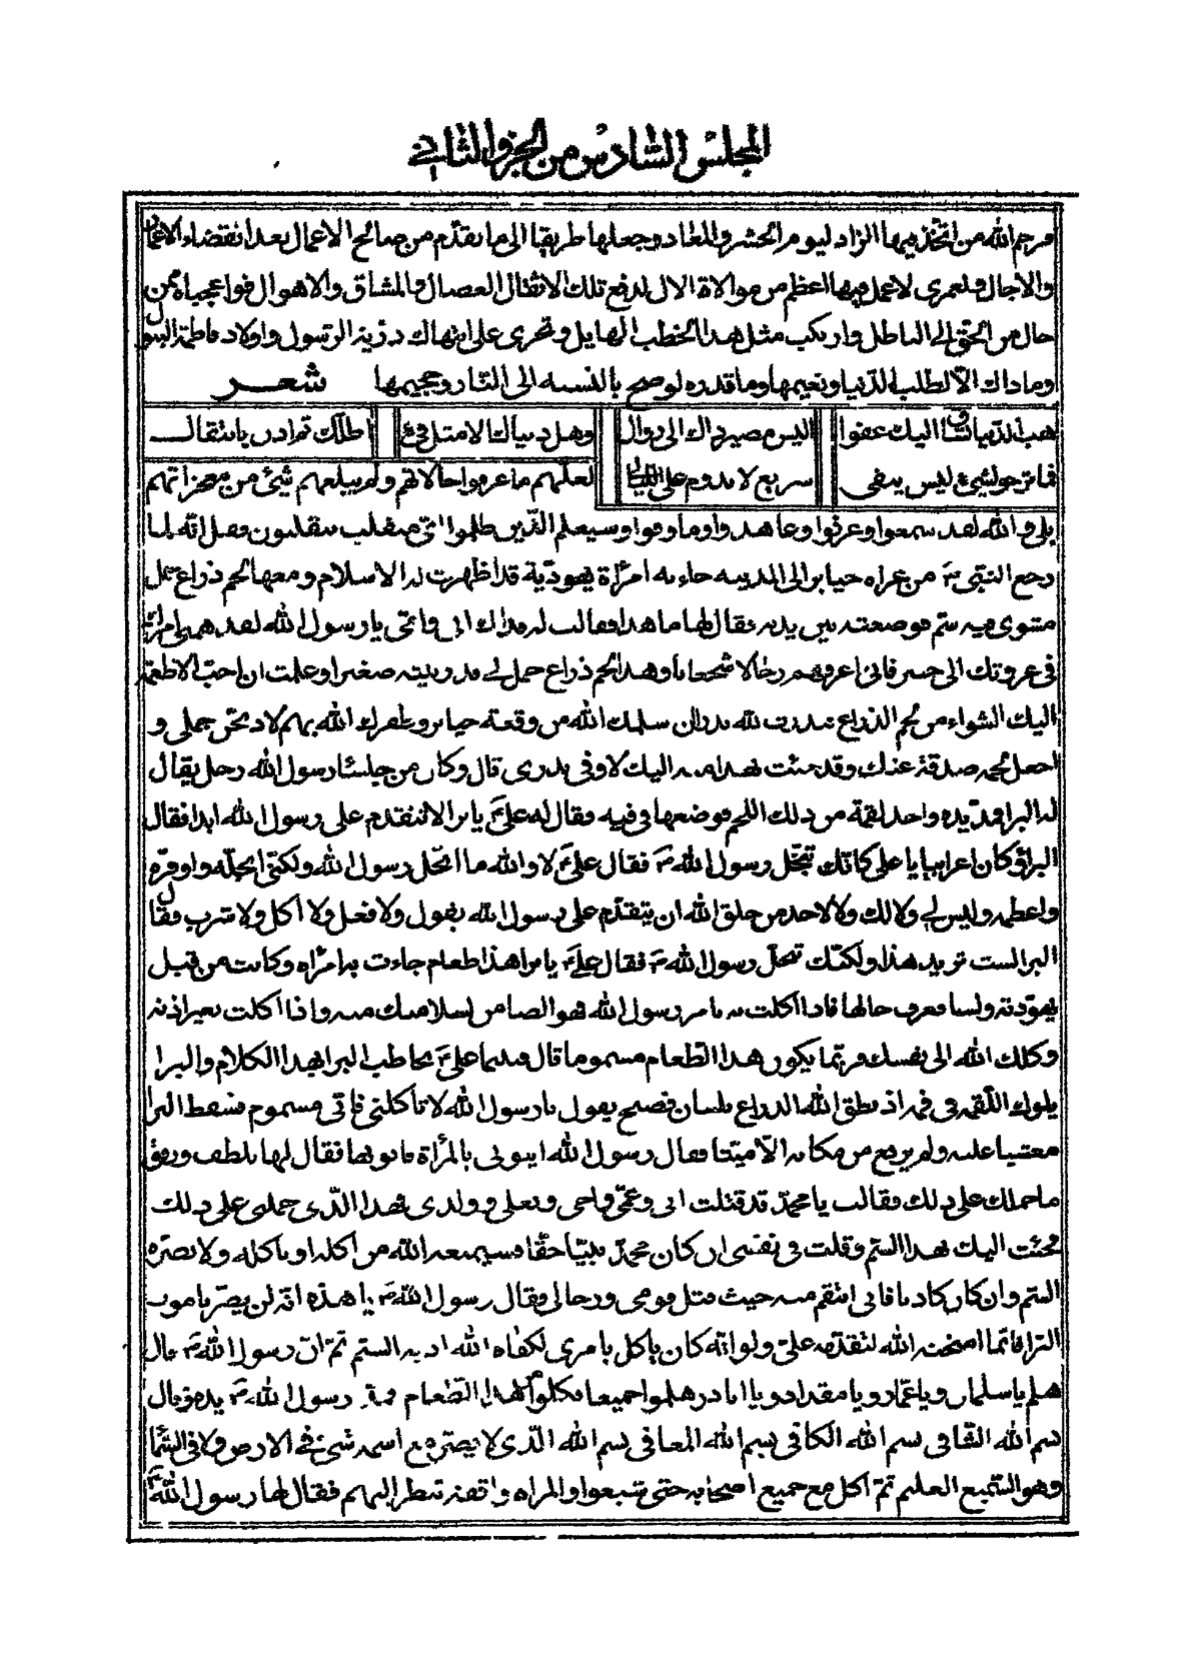 المجلس السادس من الجزو الثاني
فرحم الله من اتخذ فيها الزاد ليوم الحشر والمعاد وجعلها طريقا الى ما يقدم من صالح الاعمال بعد انقضاء الاعمار
والاجال ولعمرى لا عمل فيها اعظم من موالاة الال لدفع تلك الاثقال العضال والمشاق والاهوال فوا عجباه ممن
حال من الحق الى الباطل وارتكب مثل هذا الخطب الهايل وتجرى على انتهاك ذرية الرسول واولاد فاطمة البتول
وما ذاك الا لطلب الدنيا ونعيمها وما قدره لو صح بالنسبة الى النار وجحيمها شعر
هب الدنيا تساق اليك عفوا اليس مصير ذاك الى زوال وهل دنياك الا مثل فيئ اظلك ثم اذن بانتقال
فما ترجو لشيئ ليس يبقى سريع لا يدوم على الليالى لعلهم ما عرفوا حالاتهم ولم يبلغهم شيئ من معجزاتهم
بلى والله لقد سمعوا وعرفوا وعاهدوا وما وفوا وسيعلم الذين ظلموا اى منقلب ينقلبون ونقل انه لما
رجع النبى ص من غزاة خيابر الى المدينه جاءته امرأة يهودية قد اظهرت له الاسلام ومعها لحم ذراع حمل
مشوى فيه سم فوضعته بين يديه فقال لها ما هذا فقالت له فداك ابى وامى يا رسول الله لقد همنى امرك
فى غزوتك الى خيبر فانى اعرفهم رجالا شجعانا وهذا لحم ذراع حمل لى قد ربيته صغيرا وعلمت ان احب الاطعمة
اليك الشواء من لحم الذراع نذرت لله نذرا ان سلمك الله من وقعة خيابر وظفرك الله بهم لاذبحن حملى و
اجعل لحمه صدقة عنك وقد جئت بهذا اليك لاوفى بنذرى قال وكان من جلسا رسول الله رجل يقال
له البرا فمد يده واخذ لقمة من ذلك اللحم فوضعها فى فيه فقال له على ع يا برا لا تتقدم على رسول الله ابدا فقال
البرا وكان اعرابيا يا على كانك تبخل رسول الله ص فقال على ع لا والله ما ابخل رسول الله ولكنى ابجله واوقره
واعظمه وليس لى ولا لك ولا لاحد من خلق الله ان يتقدم على رسول الله بقول ولا فعل ولا اكل ولا شرب فقال
البرا لست تريد هذا ولكنك تبخل رسول الله ص فقال على ع يا برا هذا طعام جاءت به امرأه وكانت من قبل
يهودية ولسنا نعرف حالها فاذا اكلت منه بامر رسول الله هو الضامن لسلامتك منه واذا اكلت بغير اذنه
وكلك الله الى نفسك وربما يكون هذا الطعام مسموما قال فبينما على ع يخاطب البرا بهذا الكلام والبرا
يلوك اللقمه فى فمه اذ نطق الله الذراع بلسان فصيح يقول يا رسول الله لا تأكلنى فانى مسموم فسقط البرا
مغشيا عليه ولم يرفع من مكانه الا ميتا فقال رسول الله ايتونى بالمرأة فاتوا بها فقال لها بلطف ورفق
ما حملك على ذلك فقالت يا محمد قد قتلت ابى وعمى واخى وبعلى وولدى فهذا الذى حملنى على ذلك
فجئت اليك بهذا السم وقلت فى نفسى ان كان محمد نبيا حقا فسيمنعه الله من اكله او ياكله ولا يضره
السم وان كان كاذبا فانى انتقم منه حيث قتل قومى ورجالى فقال رسول الله ص يا هذه انه لن يضر يا موت
البرا فانما امتحنه الله لتقدمه على ولو انه كان ياكل بامرى لكفاه الله اذيه السم ثم ان رسول الله ص قال
هلم يا سلمان ويا عمار ويا مقداد ويا اباذر هلموا جميعا فكلوا من هذا الطعام فمد رسول الله ص يده وقال
بسم الله الشافى بسم الله الكافى بسم الله المعافى بسم الله الذى لا يضر مع اسمه شئ فى الارض ولا فى السماء
وهو السميع العليم ثم اكل مع جميع اصحابه حتى شبعوا والمراه واقفة تنظر اليهم فقال لها رسول الله ص